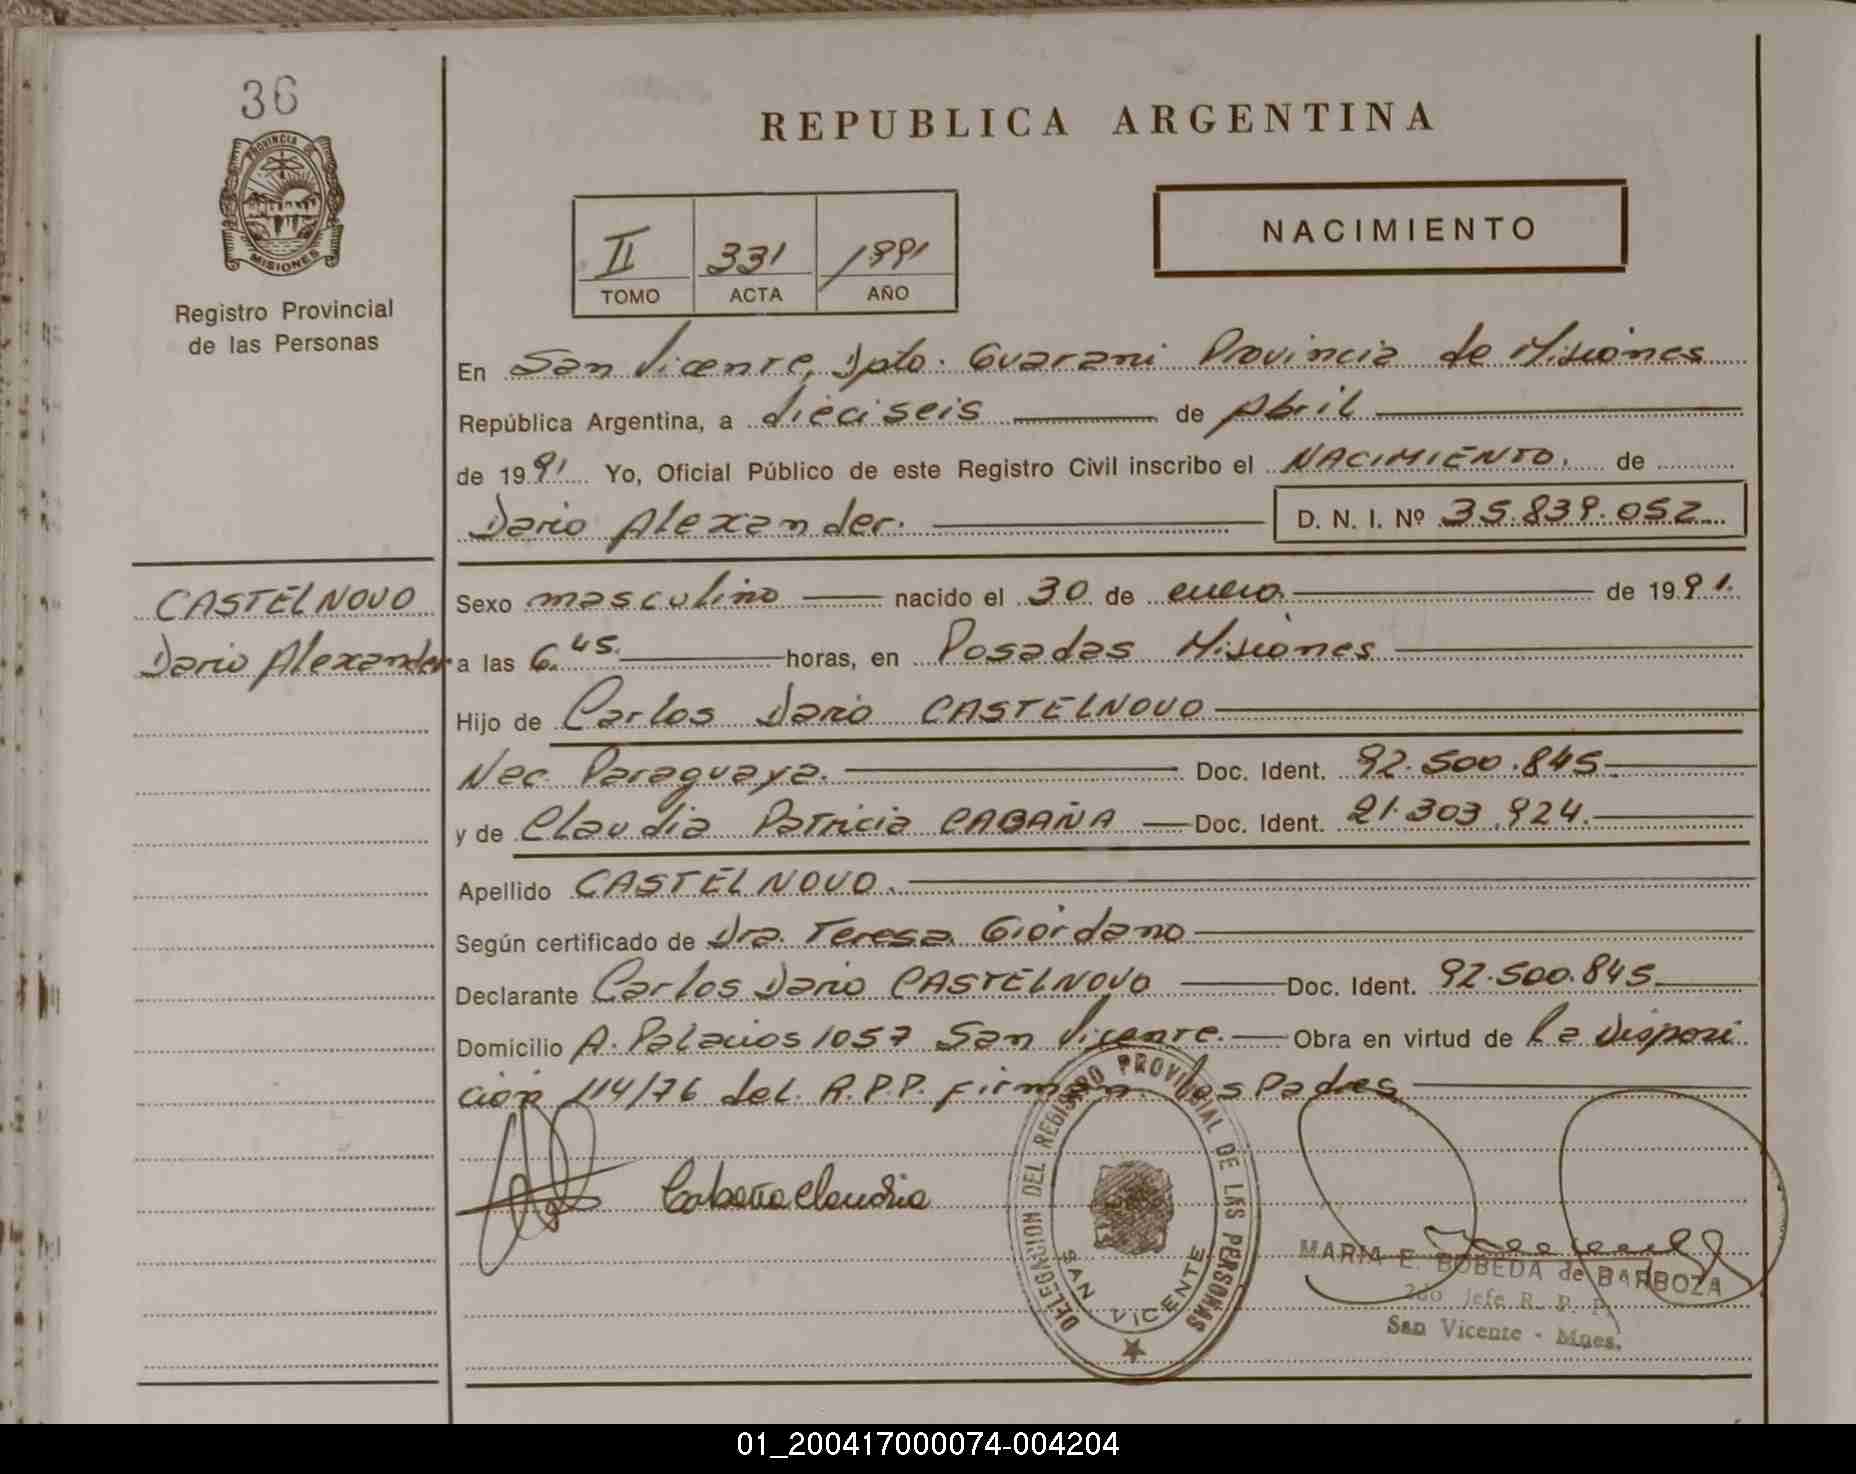 36
PROVINCIA
MISIONES
Registro Provincial
de las Personas
REPUBLICA ARGENTINA
II 331 1991
TOMO ACTA AÑO
NACIMIENTO
En San Vicente, Dpto. Guarani Provincia de Misiones
República Argentina, a dieciseis de Abril
de 1991 Yo, Oficial Público de este Registro Civil inscribo el NACIMIENTO. de
Dario Alexander. D. N. I. Nº 35.839.052
CASTELNOVO
Dario Alexander
Sexo masculino nacido el 30 de enero de 1991.
a las 6.45. horas, en Posadas Misiones
Hijo de Carlos Dario CASTELNOVO
Nac. Paraguaya. Doc. Ident. 92.500.845
y de Claudia Patricia CABAÑA Doc. Ident. 21.303.924.
Apellido CASTELNOVO.
Según certificado de Dra. Teresa Giordano
Declarante Carlos Dario CASTELNOVO Doc. Ident. 92.500.845
Domicilio A. Palacios 1057 San Vicente. Obra en virtud de la Disposi
ción 114/76 del. R.P.P. firman los Padres
Cabaña Claudia
DELEGACION DEL REGISTRO PROVINCIAL DE LAS PERSONAS
SAN VICENTE
MARIA E. BOBEDA de BARBOZA
2do Jefe R. P. P.
San Vicente - Mnes.
01_200417000074-004204